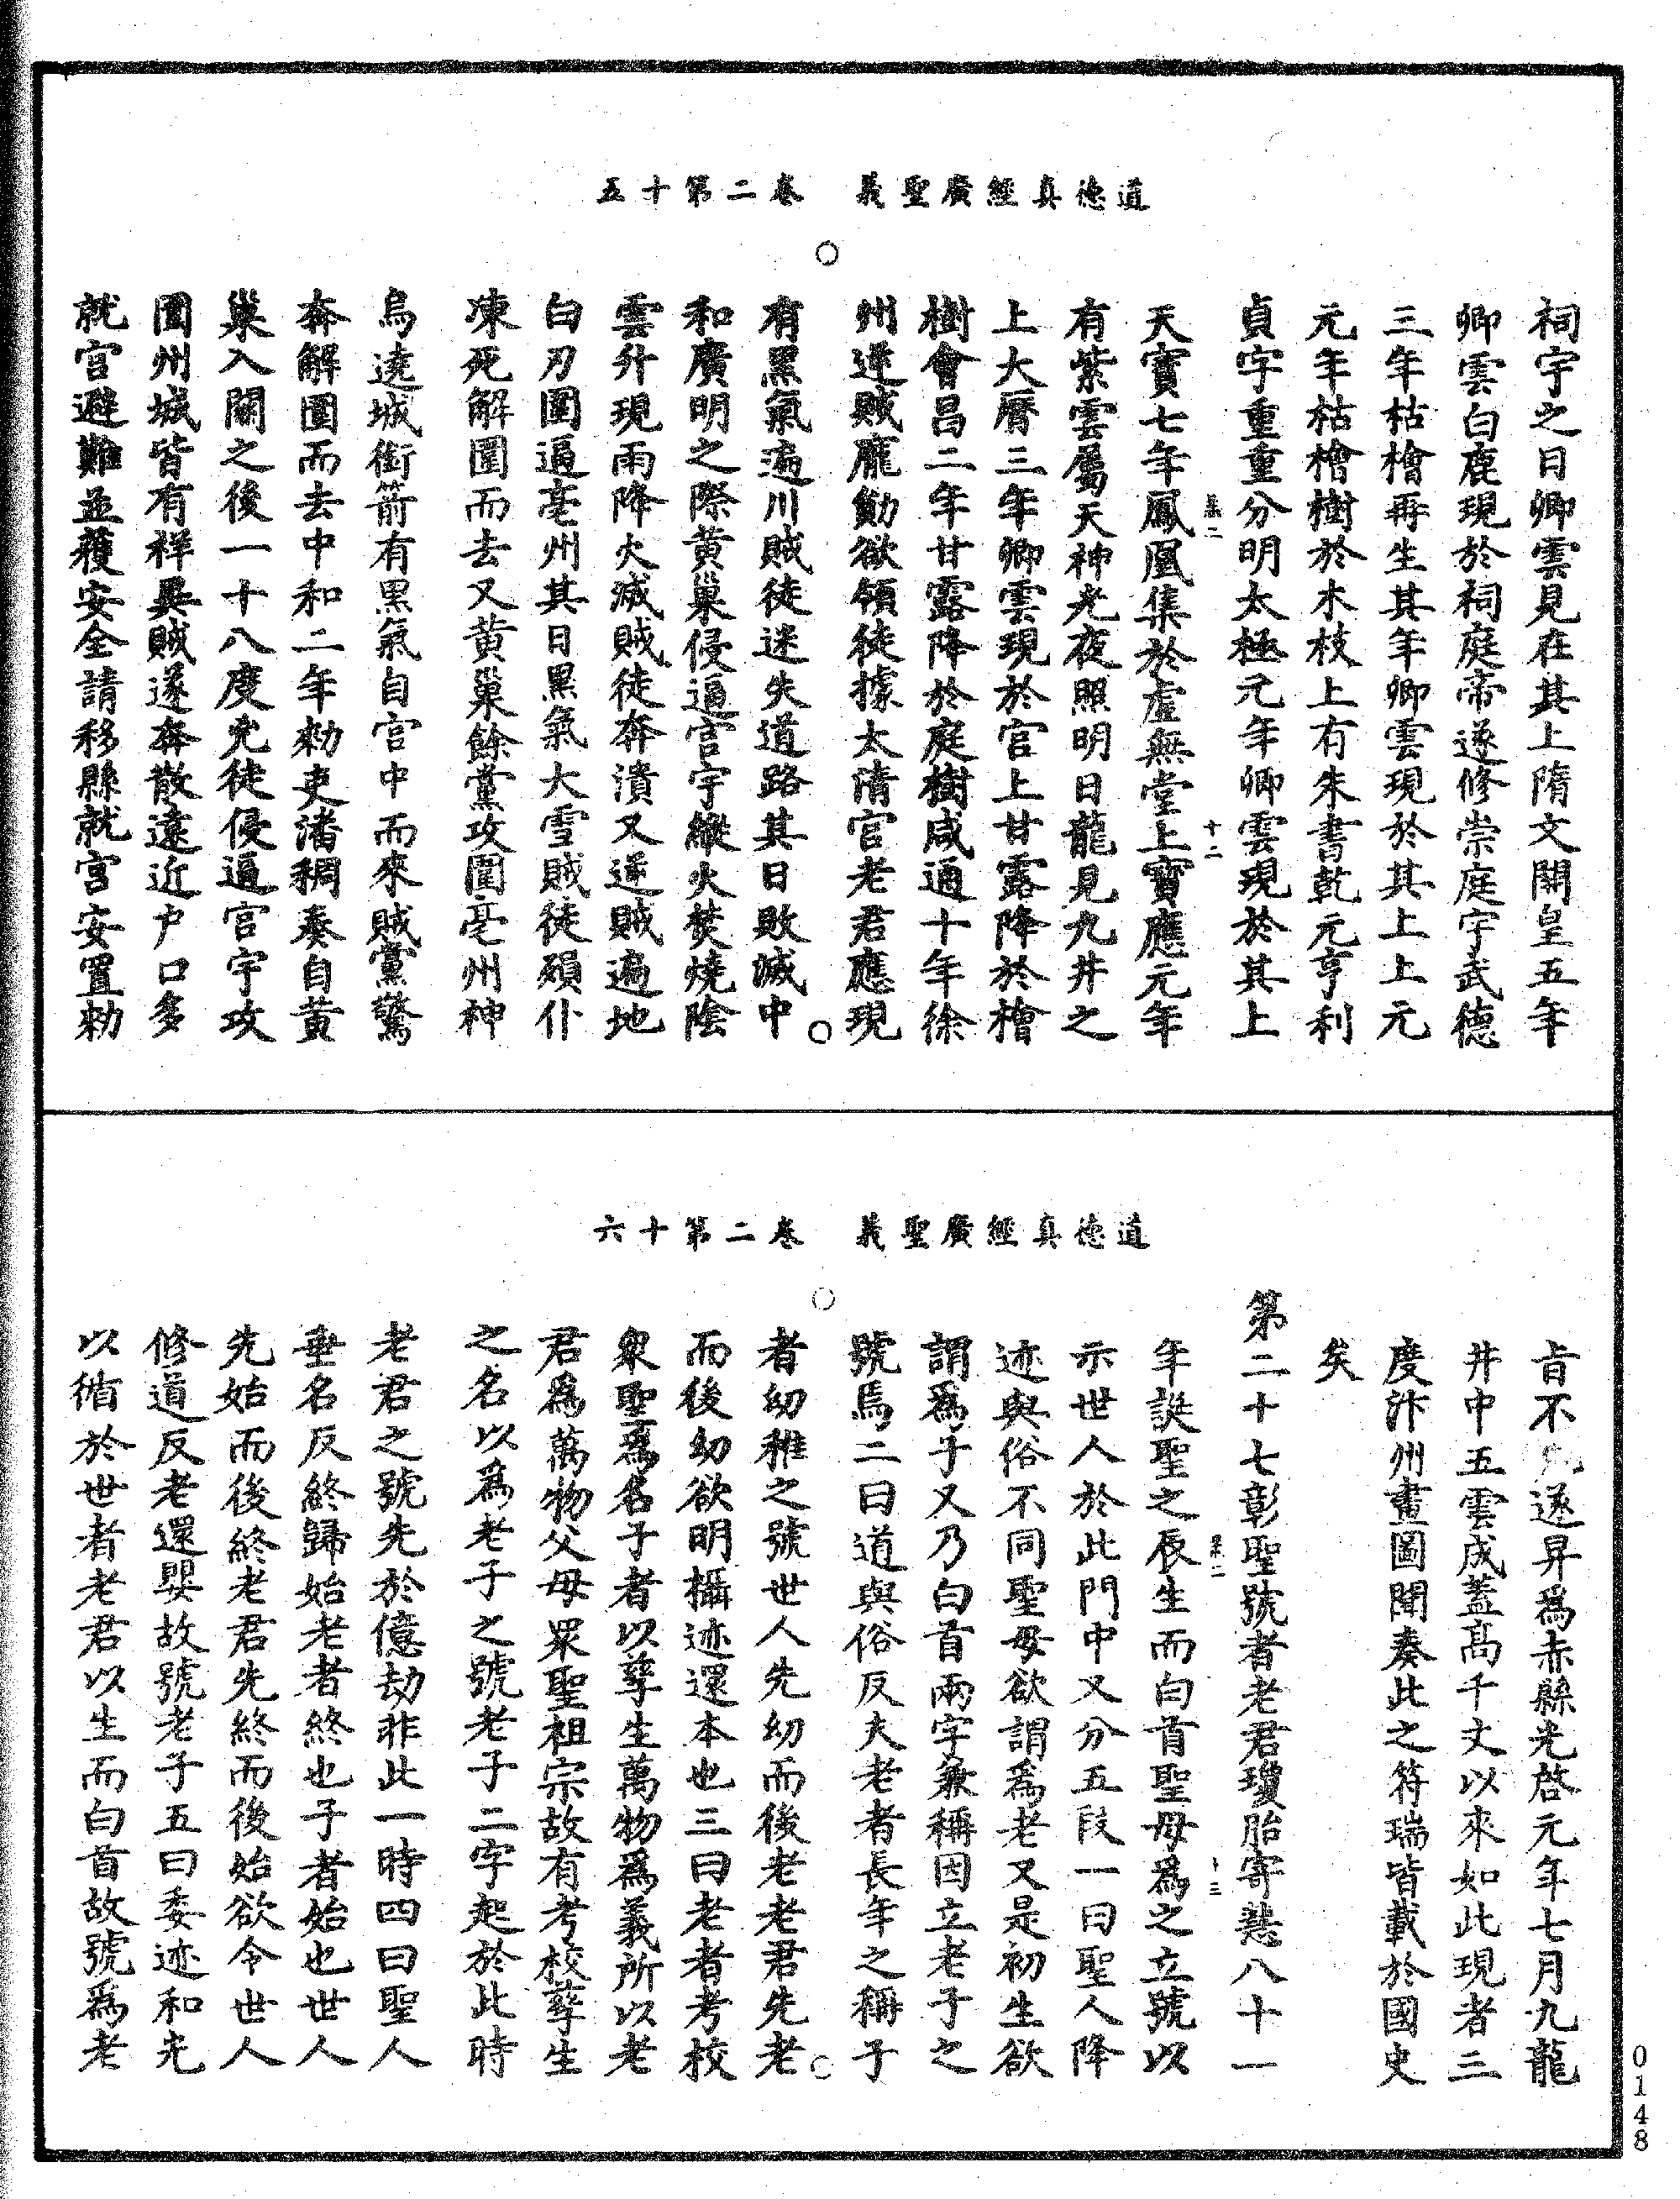 道德真經廣聖義　卷二第十五
祠宇之日卿雲見在其上隋文開皇五年
卿雲白鹿現於祠庭帝遂修崇庭宇武德
三年枯檜再生其年卿雲現於其上上元
元年枯檜樹於木枝上有朱書乾元亨利
貞字重重分明太極元年卿雲現於其上
天寶七年鳳凰集於虛無堂上寶應元年
有紫雲屬天神光夜照明日龍見九井之
上大曆三年卿雲現於宮上甘露降於檜
樹會昌二年甘露降於庭樹咸通十年徐
州逆賊龐勛欲領徒據太清宮老君應現
有黑氣遍川賊徒迷失道路其日敗滅中
和廣明之際黃巢侵逼宮宇縱火焚燒陰
雲升現雨降火滅賊徒奔潰又逆賊遍地
白刃圍逼亳州其日黑氣大雪賊徒殞仆
凍死解圍而去又黃巢餘黨攻圍亳州神
烏遶城銜箭有黑氣自宮中而來賊黨驚
奔解圍而去中和二年勑吏潘稠奏自黃
巢入關之後一十八度兇徒侵逼宮宇攻
圍州城皆有祥異賊遂奔散遠近戶口多
就宮避難並獲安全請移縣就宮安置勑
道德真經廣聖義　卷二第十六
旨不遂昇為赤縣光啓元年七月九龍
井中五雲成蓋高千丈以來如此現者三
度汴州畫圖聞奏此之符瑞皆載於國史
矣
第二十七彰聖號者老君瓊胎寄慧八十一
年誕聖之辰生而白首聖母為之立號以
示世人於此門中又分五段一曰聖人降
迹與俗不同聖母欲謂為老又是初生欲
謂為子又乃白首兩字兼稱因立老子之
號焉二曰道與俗反夫老者長年之稱子
者幼稚之號世人先幼而後老老君先老
而後幼欲明攝迹還本也三曰老者考校
衆聖為名子者以孳生萬物為義所以老
君為萬物父母眾聖祖宗故有考校孳生
之名以為老子之號老子二字起於此時
老君之號先於億劫非此一時四曰聖人
垂名反終歸始老者終也子者始也世人
先始而後終老君先終而後始欲令世人
修道反老還嬰故號老子五曰委迹和光
以循於世者老君以生而白首故號為老
0148